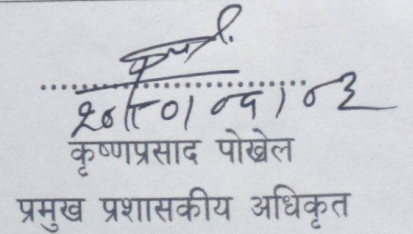 २०८०।०५।०३
कृष्णप्रसाद पोखेल
प्रमुख प्रशासकीय अधिकृत